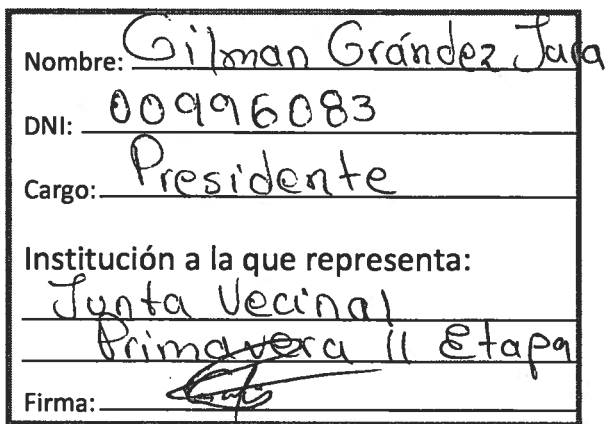 Nombre: Gilman Grández Jara
DNI: 00996083
Cargo: Presidente
Institución a la que representa:
Junta Vecinal
Primavera II Etapa
Firma: